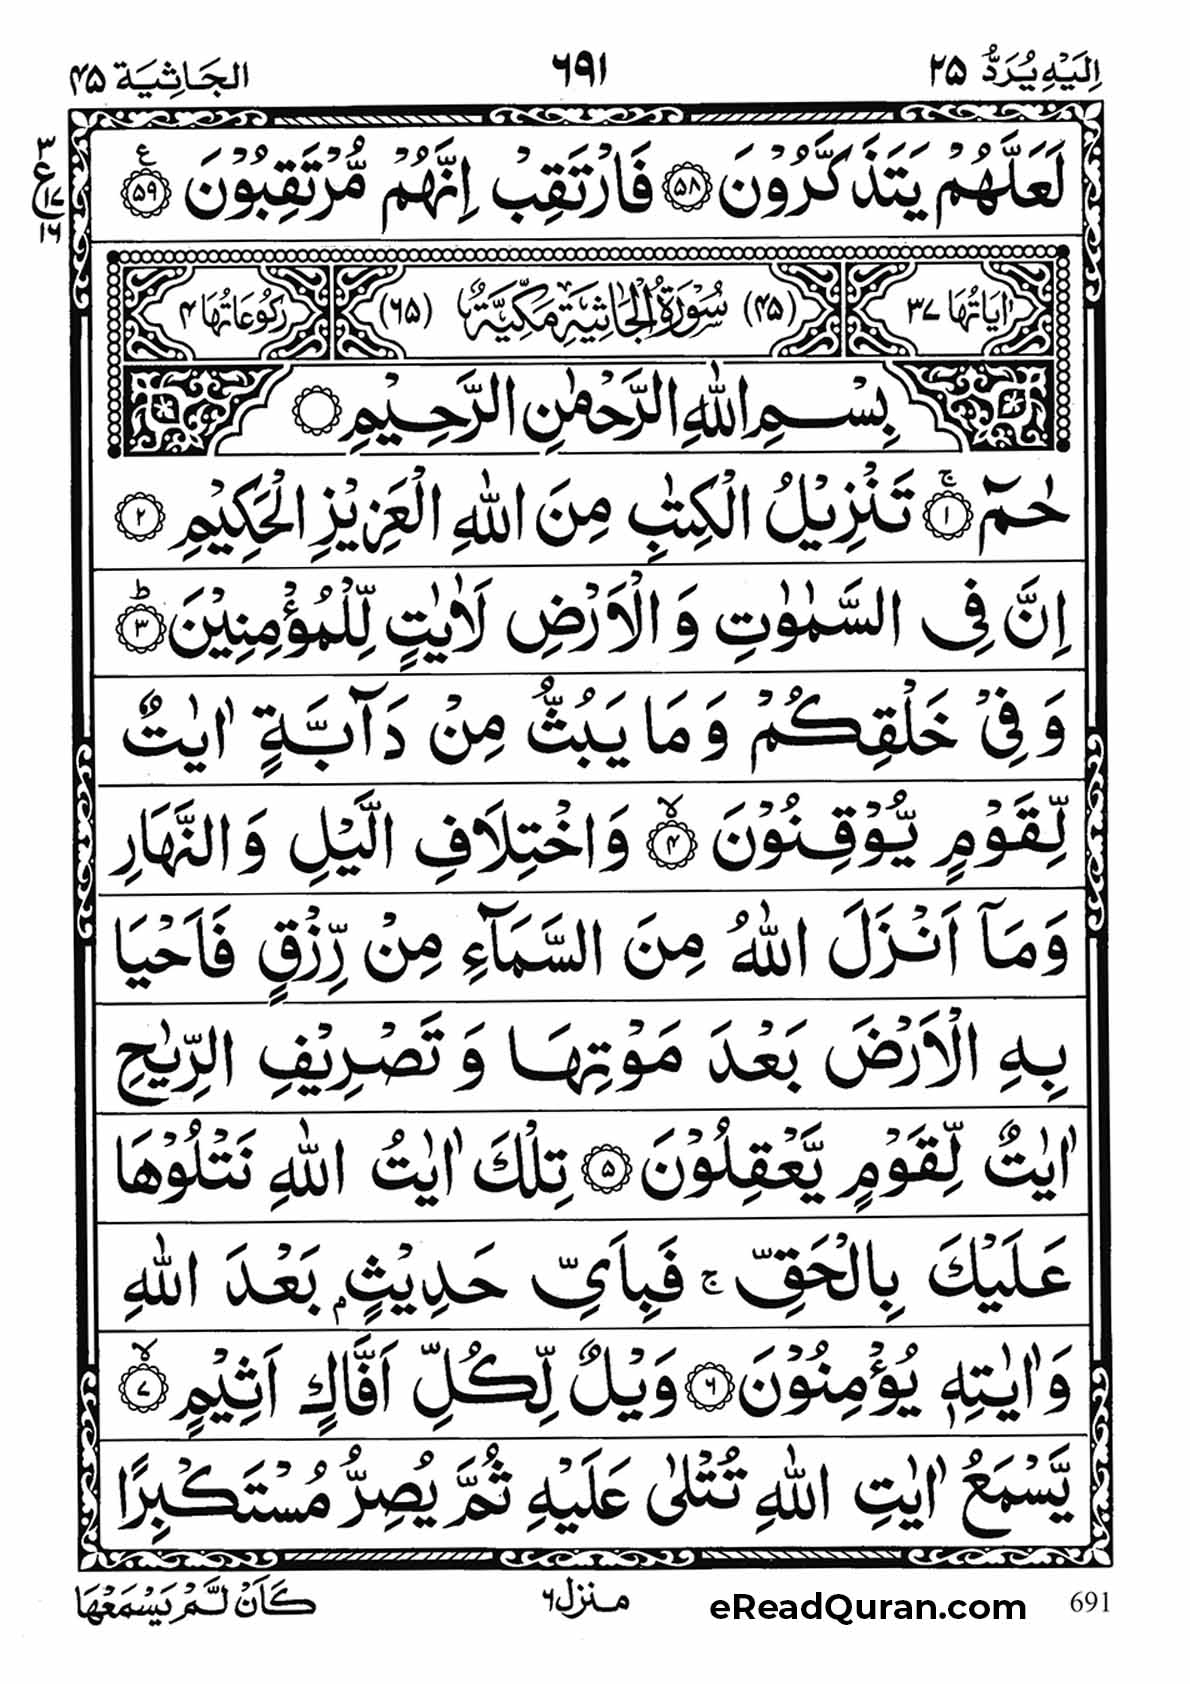 اِلَيْهِ يُرَدُّ ٢٥
٦٩١
الجَاثِيَة ٤٥
لَعَلَّهُمْ يَتَذَكَّرُوْنَ ٥٨ فَارْتَقِبْ اِنَّهُمْ مُّرْتَقِبُوْنَ ٥٩ ع
٣
ع
١٧
١٦
اٰيَاتُهَا ٣٧
(٤٥) سُوْرَةُ الْجَاثِيَةِ مَكِّيَّةٌ (٦٥)
رُكُوْعَاتُهَا ٤
بِسْمِ اللّٰهِ الرَّحْمٰنِ الرَّحِيْمِ
حٰمٓ ١ ج تَنْزِيْلُ الْكِتٰبِ مِنَ اللّٰهِ الْعَزِيْزِ الْحَكِيْمِ ٢
اِنَّ فِى السَّمٰوٰتِ وَ الْاَرْضِ لَاٰيٰتٍ لِّلْمُؤْمِنِيْنَ ٣ ط
وَ فِىْ خَلْقِكُمْ وَ مَا يَبُثُّ مِنْ دَآبَّةٍ اٰيٰتٌ
لِّقَوْمٍ يُّوْقِنُوْنَ ٤ لا وَ اخْتِلَافِ الَّيْلِ وَ النَّهَارِ
وَ مَآ اَنْزَلَ اللّٰهُ مِنَ السَّمَآءِ مِنْ رِّزْقٍ فَاَحْيَا
بِهِ الْاَرْضَ بَعْدَ مَوْتِهَا وَ تَصْرِيْفِ الرِّيٰحِ
اٰيٰتٌ لِّقَوْمٍ يَّعْقِلُوْنَ ٥ تِلْكَ اٰيٰتُ اللّٰهِ نَتْلُوْهَا
عَلَيْكَ بِالْحَقِّ ج فَبِاَىِّ حَدِيْثٍۭ بَعْدَ اللّٰهِ
وَ اٰيٰتِهٖ يُؤْمِنُوْنَ ٦ وَيْلٌ لِّكُلِّ اَفَّاكٍ اَثِيْمٍ ٧ لا
يَّسْمَعُ اٰيٰتِ اللّٰهِ تُتْلٰى عَلَيْهِ ثُمَّ يُصِرُّ مُسْتَكْبِرًا
691
eReadQuran.com
منزل ٦
كَاَنْ لَّمْ يَسْمَعْهَا